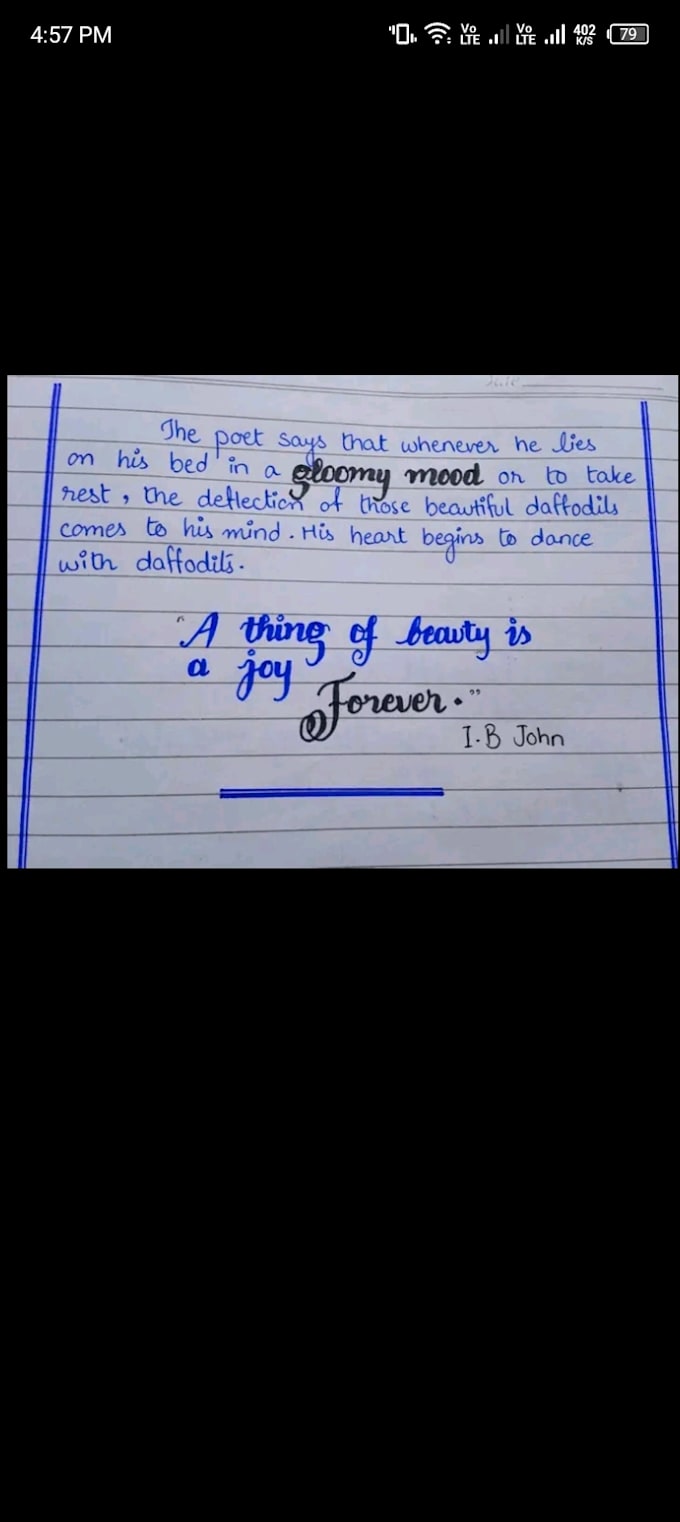 4:57 PM
Vo LTE Vo LTE 402 K/S 79
The poet says that whenever he lies
on his bed in a gloomy mood or to take
rest, the deflection of those beautiful daffodils
comes to his mind. His heart begins to dance
with daffodils.
"A thing of beauty is
a joy
Forever."
I.B John